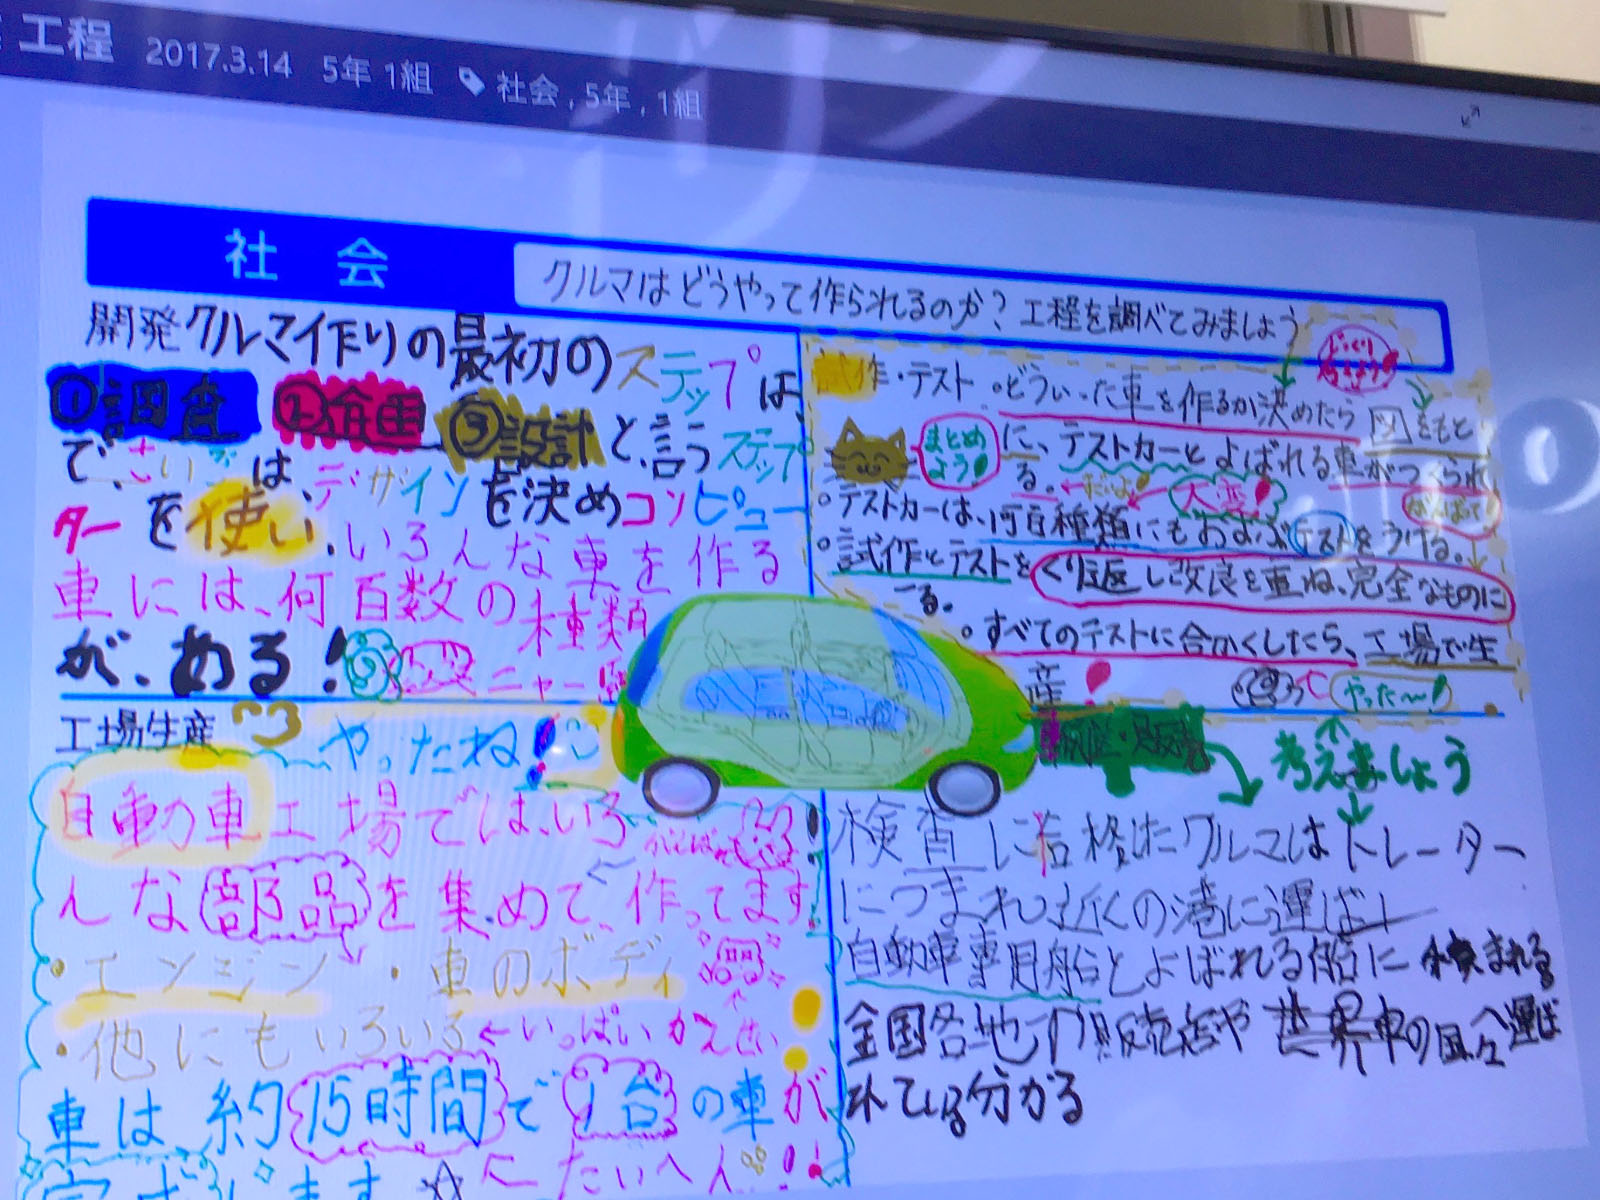 工程 2017.3.14 5年 1組 社会 , 5年 , 1組
社会
クルマはどうやって作られるのか?工程を調べてみましょう
開発クルマ作りの最初のステップは、
①調査 ②企画 ③設計と言うステップ
で、さいごは、デザインを決めコンピュー
ターを使い、いろんな車を作る
車には、何百数の種類
が、める!
ニャー
試作・テスト
どういった車を作るか決めたら図をもと
に、テストカーとよばれる車がつくられ
る。
まとめよう
大変
がんばって
テストカーは、何百種類にもおよぶテストをうける。
試作とテストをくり返し改良を重ね、完全なものに
する。
すべてのテストに合かくしたら、工場で生
産
やった〜!
工場生産
やったね!
自動車工場では、いろ
んな部品を集めて、作ってます!
・エンジン ・車のボディ
・他にもいろいろ←いっぱい
車は約15時間で1台の車が
たいへん!
・販売
考えましょう
検査に合格したクルマはトレーター
につまれ近くの港に運ばし
自動車専用船とよばれる船に
全国各地の販売店や世界中の国々へ運ば
れている分かる